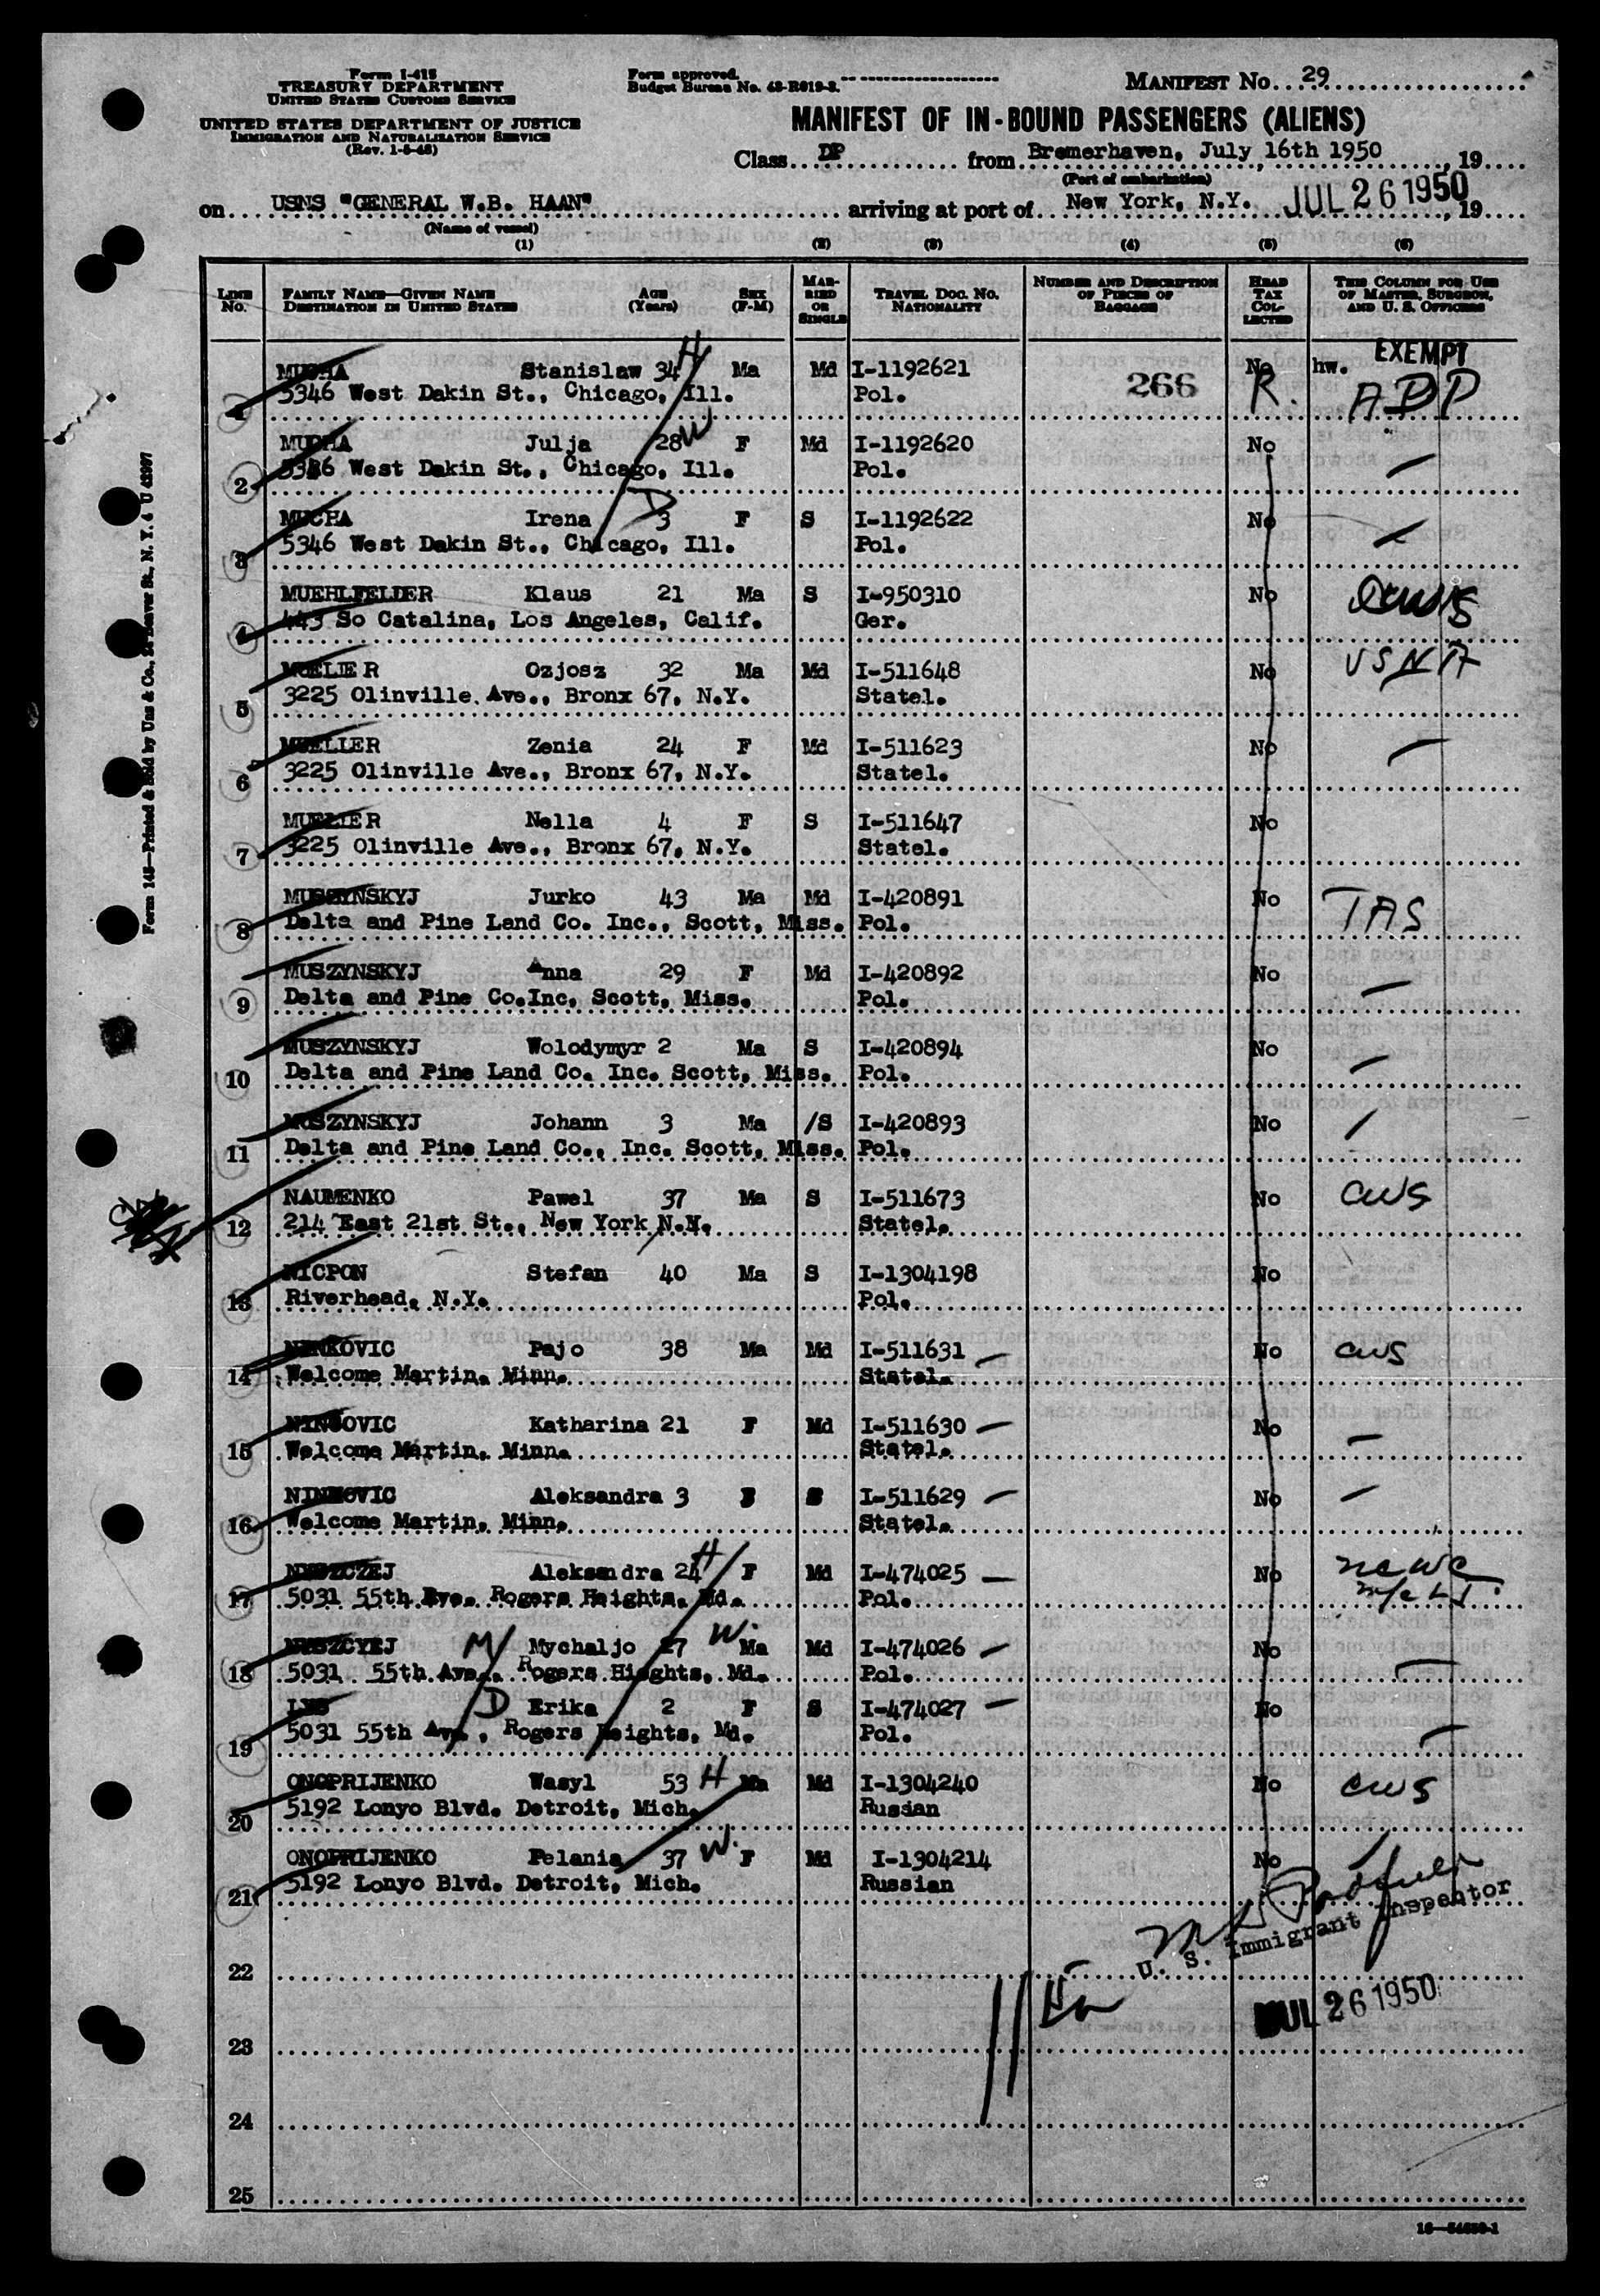 Form I-415
TREASURY DEPARTMENT
UNITED STATES CUSTOMS SERVICE
UNITED STATES DEPARTMENT OF JUSTICE
IMMIGRATION AND NATURALIZATION SERVICE
(Rev. 1-5-48)
Form approved.
Budget Bureau No. 43-R019-3.
MANIFEST No. 29
MANIFEST OF IN-BOUND PASSENGERS (ALIENS)
Class DP from Bremerhaven, July 16th 1950, 19
(Port of embarkation)
on USNS "GENERAL W.B. HAAN" arriving at port of New York, N.Y. JUL 26 1950, 19
(Name of vessel)
(1) (2) (3) (4) (5) (6)
LINE No. FAMILY NAME—GIVEN NAME DESTINATION IN UNITED STATES AGE (Years) SEX (F-M) MARRIED OR SINGLE TRAVEL DOC. No. NATIONALITY NUMBER AND DESCRIPTION OF PIECES OF BAGGAGE HEAD TAX COLLECTED THIS COLUMN FOR USE OF MASTER, SURGEON, AND U. S. OFFICERS
EXEMPT
MUCHA Stanislaw 34 H Ma Md I-1192621 266 No hw.
1 5346 West Dakin St., Chicago, Ill. Pol. R. ADP
MUCHA Julja 28 W F Md I-1192620 No
2 5346 West Dakin St., Chicago, Ill. Pol.
MUCHA Irena D 3 F S I-1192622 No
3 5346 West Dakin St., Chicago, Ill. Pol.
MUEHLFELIER Klaus 21 Ma S I-950310 No
4 443 So Catalina, Los Angeles, Calif. Ger.
MUELIER Ozjosz 32 Ma Md I-511648 No USNA
5 3225 Olinville Ave., Bronx 67, N.Y. Statel.
MUELLER Zenia 24 F Md I-511623 No
6 3225 Olinville Ave., Bronx 67, N.Y. Statel.
MUELIER Nella 4 F S I-511647 No
7 3225 Olinville Ave., Bronx 67, N.Y. Statel.
MUSZYNSKYJ Jurko 43 Ma Md I-420891 No TAS
8 Delta and Pine Land Co. Inc., Scott, Miss. Pol.
MUSZYNSKYJ Anna 29 F Md I-420892 No
9 Delta and Pine Co.Inc, Scott, Miss. Pol.
MUSZYNSKYJ Wolodymyr 2 Ma S I-420894 No
10 Delta and Pine Land Co. Inc. Scott, Miss. Pol.
MUSZYNSKYJ Johann 3 Ma /S I-420893 No
11 Delta and Pine Land Co., Inc. Scott, Miss. Pol.
NAUMENKO Pawel 37 Ma S I-511673 No CWS
12 214 East 21st St., New York N.Y. Statel.
NICPON Stefan 40 Ma S I-1304198 No
13 Riverhead, N.Y. Pol.
NINKOVIC Pajo 38 Ma Md I-511631 No CWS
14 Welcome Martin, Minn. Statel.
NINKOVIC Katharina 21 F Md I-511630 No
15 Welcome Martin, Minn. Statel.
NINKOVIC Aleksandra 3 F S I-511629 No
16 Welcome Martin, Minn. Statel.
Aleksandra 24 H F Md I-474025 No NCWC
17 5031 55th Ave. Rogers Heights, Md. Pol.
M Mychaljo 27 W. Ma Md I-474026 No
18 5031 55th Ave. Rogers Hieghts, Md. Pol.
D Erika 2 F S I-474027 No
19 5031 55th Ave., Rogers Heights, Md. Pol.
ONOPRIJENKO Wasyl 53 H Ma Md I-1304240 No CWS
20 5192 Lonyo Blvd. Detroit, Mich. Russian
ONOPRIJENKO Pelania 37 W. F Md I-1304214 No
21 5192 Lonyo Blvd. Detroit, Mich. Russian
U. S. Immigrant Inspector
22
JUL 26 1950
23
24
25
16—54650-1